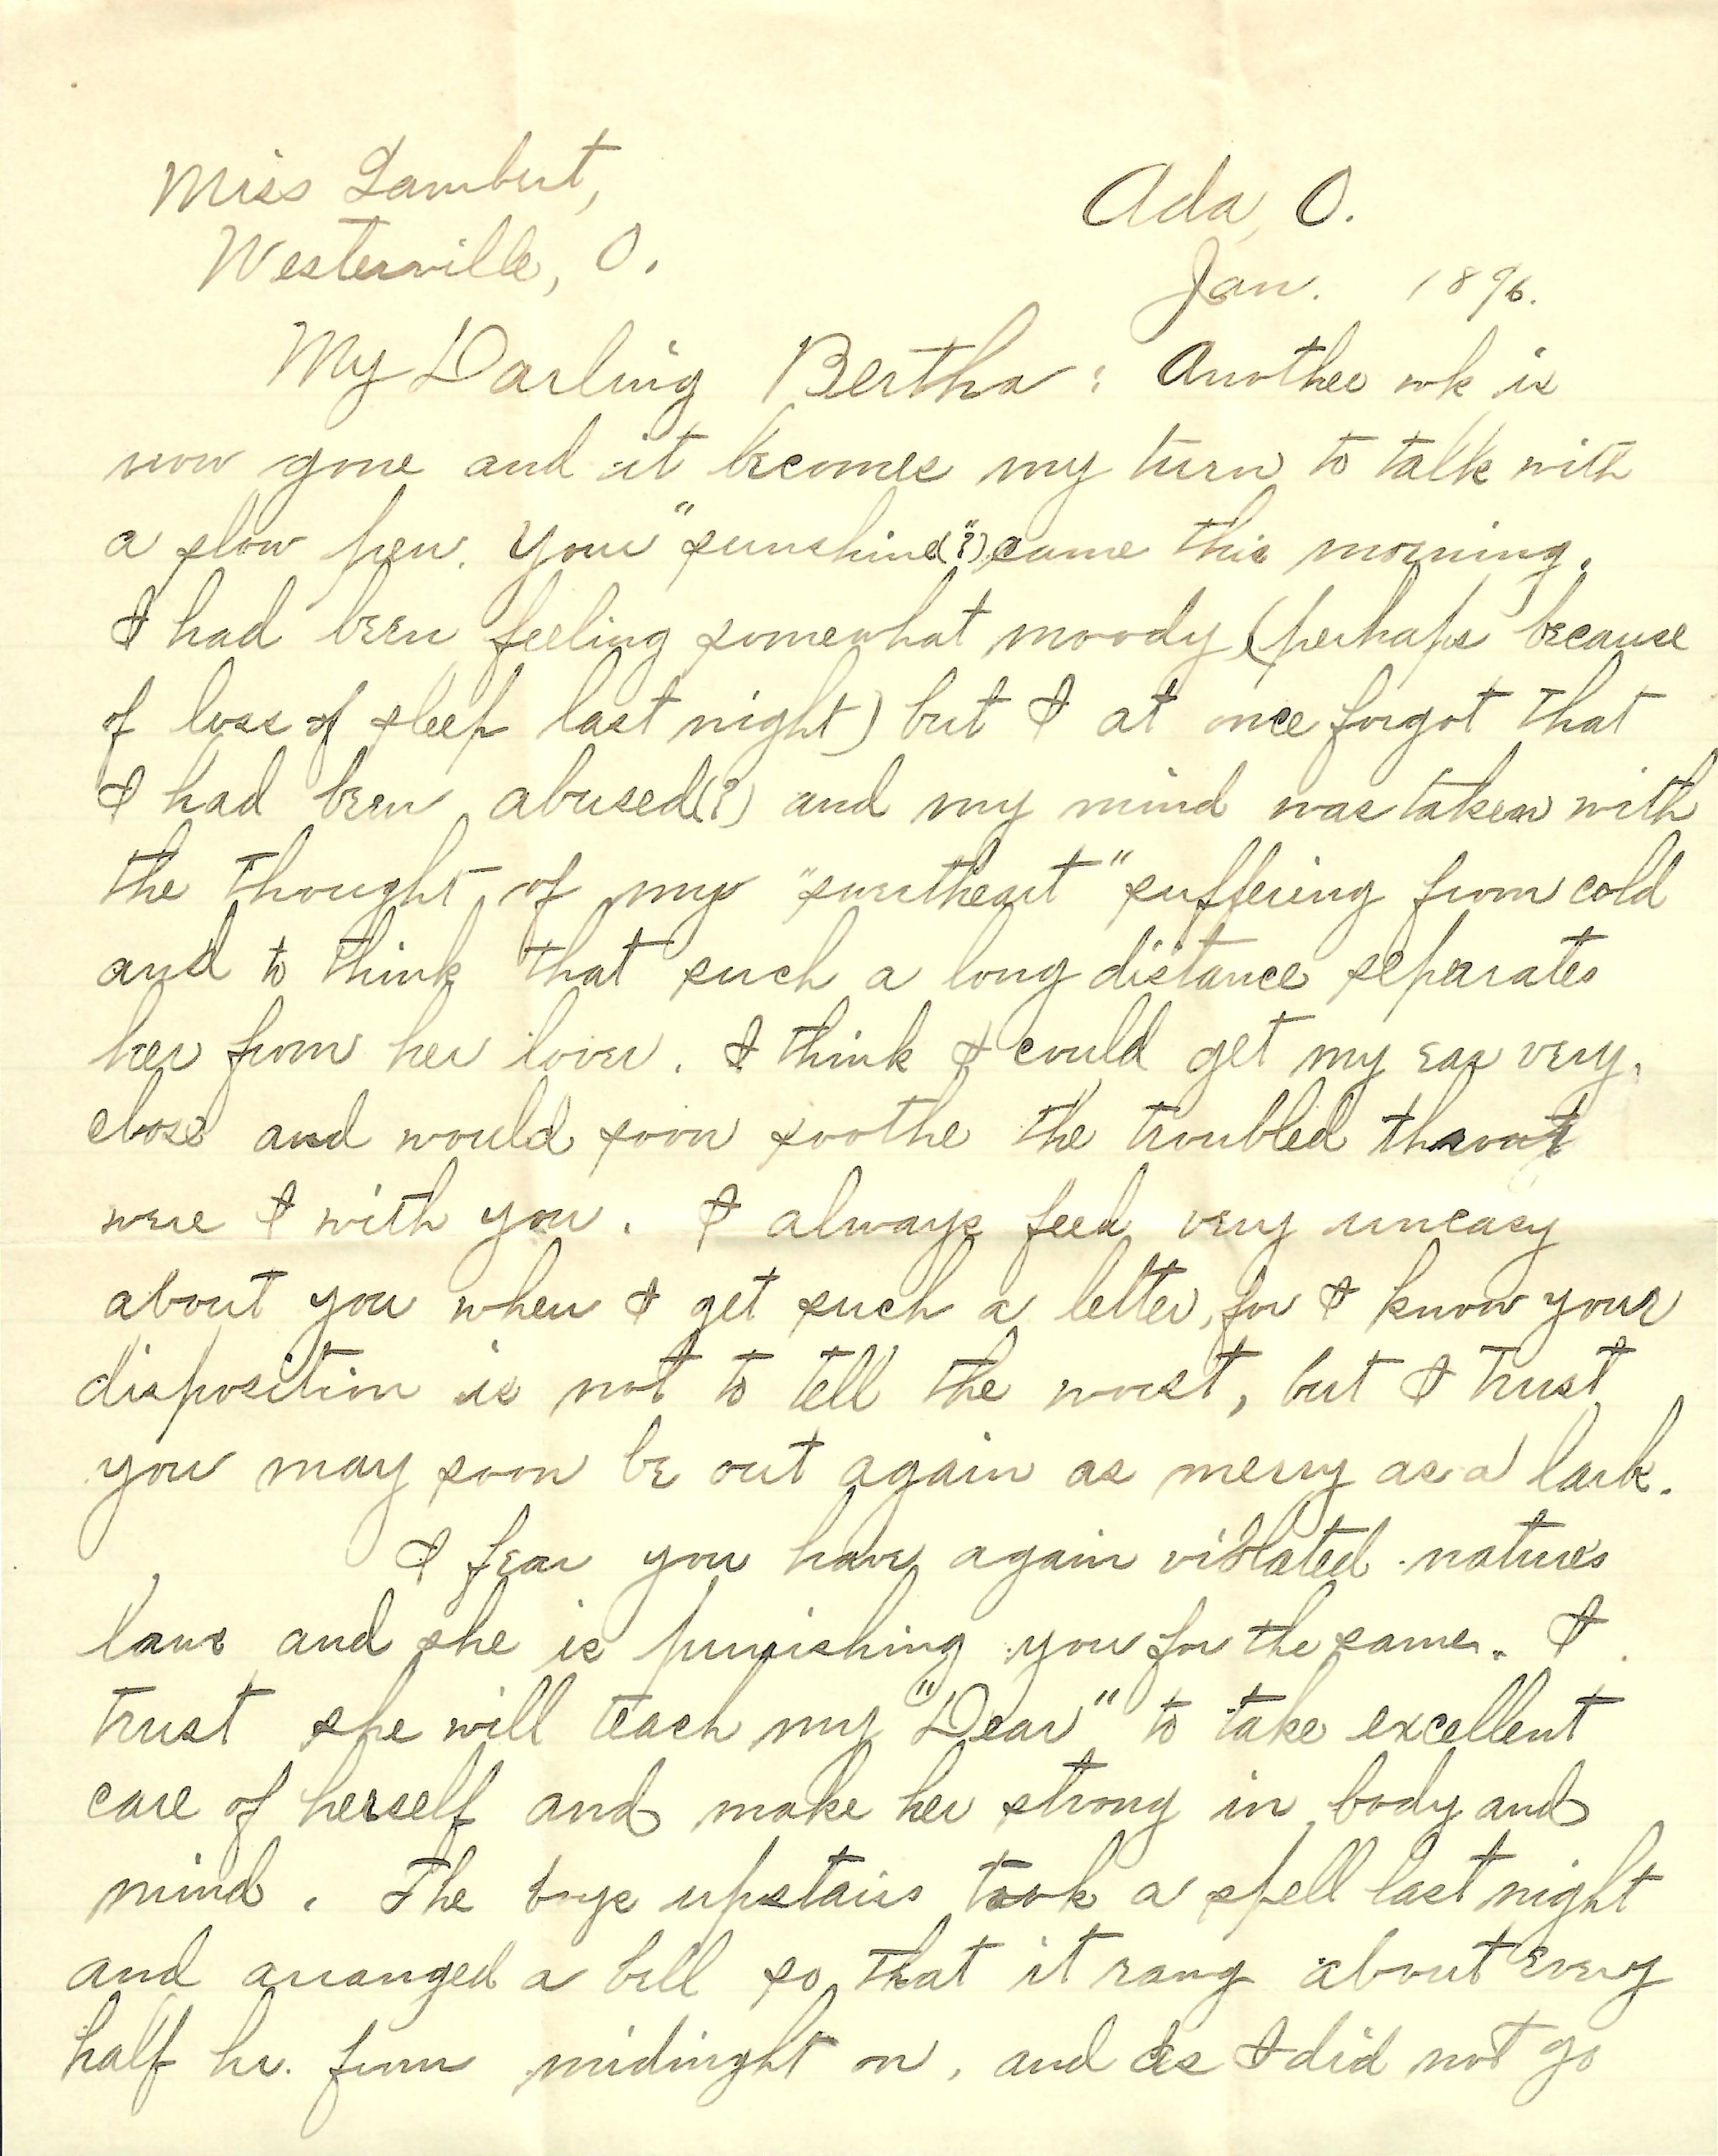 Miss Lambert,
Westerville, O.
Ada, O.
Jan. 1896.
My Darling Bertha: Another wk is
now gone and it becomes my turn to talk with
a slow pen. Your "sunshine(?)" came this morning.
I had been feeling somewhat moody, (perhaps because
of loss of sleep last night) but I at once forgot that
I had been abused(?) and my mind was taken with
the thought of my "sweetheart" suffering from cold
and to think that such a long distance separates
her from her lover. I think I could get my ear very,
close and would soon soothe the troubled throat
were I with you. I always feel very uneasy
about you when I get such a letter, for I know your
disposition is not to tell the worst, but I trust
you may soon be out again as merry as a lark.
I fear you have again violated natures
laws and she is punishing you for the same. I
trust she will teach my "Dear" to take excellent
care of herself and make her strong in body and
mind. The boys upstairs took a spell last night
and arranged a bell so that it rang about every
half hr. from midnight on, and as I did not go